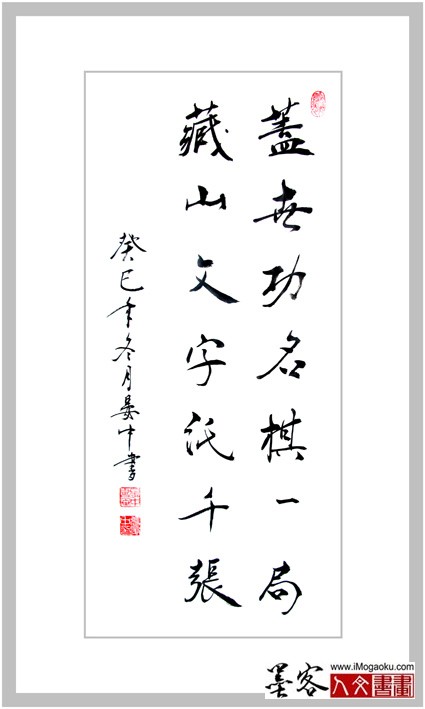 蓋世功名棋一局
藏山文字紙千張
癸巳年冬月晏中書
墨客
www.iMogaoku.com
人文書畫